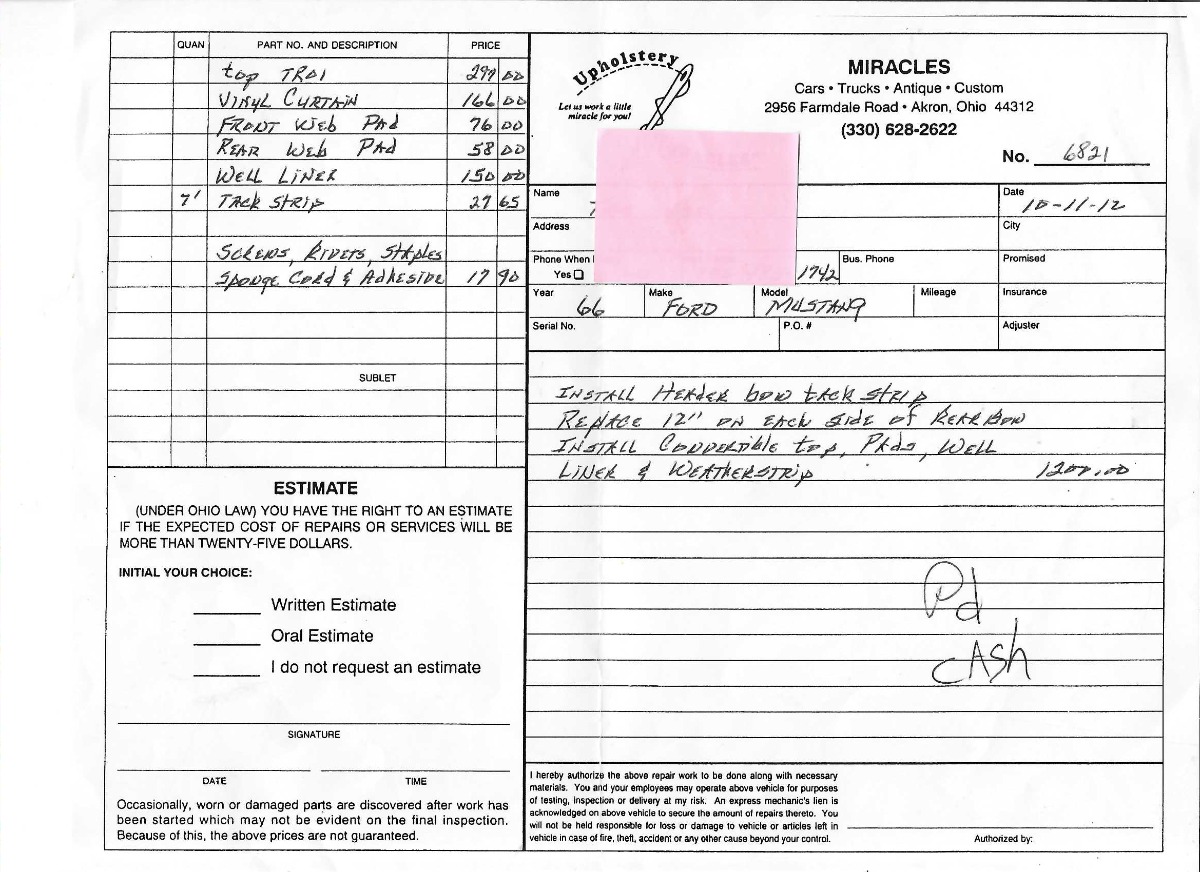 QUAN PART NO. AND DESCRIPTION PRICE
top TROI 299 00
VINYL CURTAIN 166 00
FRONT WEB PAD 76 00
REAR WEB PAD 58 00
WELL LINER 150 00
7' TACK STRIP 27 65
SCREWS, RIVETS, STAPLES
SPONGE CORD & ADHESIVE 17 90
SUBLET
ESTIMATE
(UNDER OHIO LAW) YOU HAVE THE RIGHT TO AN ESTIMATE
IF THE EXPECTED COST OF REPAIRS OR SERVICES WILL BE
MORE THAN TWENTY-FIVE DOLLARS.
INITIAL YOUR CHOICE:
Written Estimate
Oral Estimate
I do not request an estimate
SIGNATURE
DATE TIME
Occasionally, worn or damaged parts are discovered after work has
been started which may not be evident on the final inspection.
Because of this, the above prices are not guaranteed.
Upholstery
Let us work a little
miracle for you!
MIRACLES
Cars • Trucks • Antique • Custom
2956 Farmdale Road • Akron, Ohio 44312
(330) 628-2622
No. 6821
Name Date
10-11-12
Address City
Phone When Bus. Phone Promised
Yes 1742
Year Make Model Mileage Insurance
66 FORD MUSTANG
Serial No. P.O. # Adjuster
INSTALL HEADER bow tACK StRIP
REPLACE 12" ON EACH SIDE OF REAR BOW
INSTALL CONVERTIBLE top, PADS, WELL
LINER & WEATHERSTRIP 1200.00
Pd
CASh
I hereby authorize the above repair work to be done along with necessary
materials. You and your employees may operate above vehicle for purposes
of testing, inspection or delivery at my risk. An express mechanic's lien is
acknowledged on above vehicle to secure the amount of repairs thereto. You
will not be held responsible for loss or damage to vehicle or articles left in
vehicle in case of fire, theft, accident or any other cause beyond your control.
Authorized by: